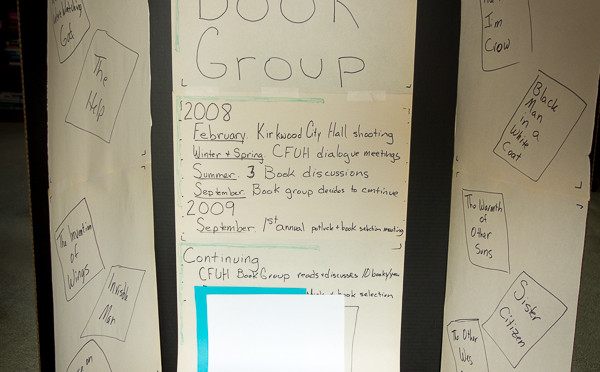 Gods
The
Help
The Invention
of
Wings
Invisible
Man
on
Book
Group
2008
February. Kirkwood City Hall shooting
Winter + Spring CFUH dialogue meetings
Summer. 3 Book discussions
September. Book group decides to continue
2009
September. 1st annual potluck + book selection meeting
Continuing
CFUH Book Group reads + discusses 10 books/year
+ book selection
Jim
Crow
Black
Man
in a
White
Coat
The Warmth
of
Other
Suns
Sister
Citizen
The Other
Wes